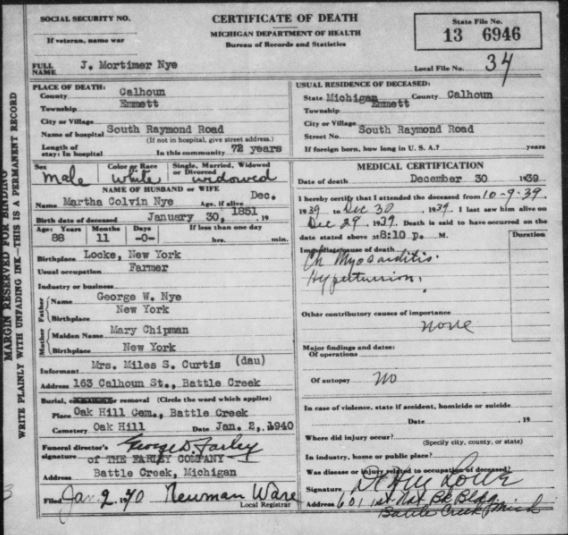 SOCIAL SECURITY NO.
If veteran, name war
CERTIFICATE OF DEATH
MICHIGAN DEPARTMENT OF HEALTH
Bureau of Records and Statistics
State File No.
13 6946
FULL NAME J. Mortimer Nye
Local File No. 34
PLACE OF DEATH:
County Calhoun
Township Emmett
City or Village
Name of hospital South Raymond Road
(If not in hospital, give street address.)
Length of stay: In hospital In this community 72 years
USUAL RESIDENCE OF DECEASED:
State Michigan County Calhoun
Township Emmett
City or Village
Street No. South Raymond Road
If foreign born, how long in U. S. A.? years
Sex Male Color or Race White Single, Married, Widowed or Divorced widowed
NAME OF HUSBAND or WIFE
Martha Colvin Nye Age, if alive Dec.
Birth date of deceased January 30, 1851
Age: Years 88 Months 11 Days -0- If less than one day hrs. min.
Birthplace Locke, New York
Usual occupation Farmer
Industry or business
Father Name George W. Nye
Birthplace New York
Mother Maiden Name Mary Chipman
Birthplace New York
Informant Mrs. Miles S. Curtis (dau)
Address 163 Calhoun St., Battle Creek
Burial, or removal (Circle the word which applies)
Place Oak Hill Cem., Battle Creek
Cemetery Oak Hill Date Jan. 2, 1940
Funeral director's signature George D. Farley
of THE FARLEY COMPANY
Address Battle Creek, Michigan
Filed Jan 2 1940 Newman Ware
Local Registrar
MEDICAL CERTIFICATION
Date of death December 30 1939
I hereby certify that I attended the deceased from 10-9-39
1939 to Dec 30 1939. I last saw him alive on
Dec 29 1939. Death is said to have occurred on the
date stated above at 8:10 p. M.
Duration
Immediate cause of death
Ch Myocarditis
Hypertension
Other contributory causes of importance
none
Major findings and dates:
Of operations
Of autopsy no
In case of violence, state if accident, homicide or suicide
Date , 19
Where did injury occur?
(Specify city, county, or state)
In industry, home or public place?
Was disease or injury related to occupation of deceased?
Signature
Address 601 1st Nat Bk Bldg
Battle Creek Mich
MARGIN RESERVED FOR BINDING
WRITE PLAINLY WITH UNFADING INK—THIS IS A PERMANENT RECORD